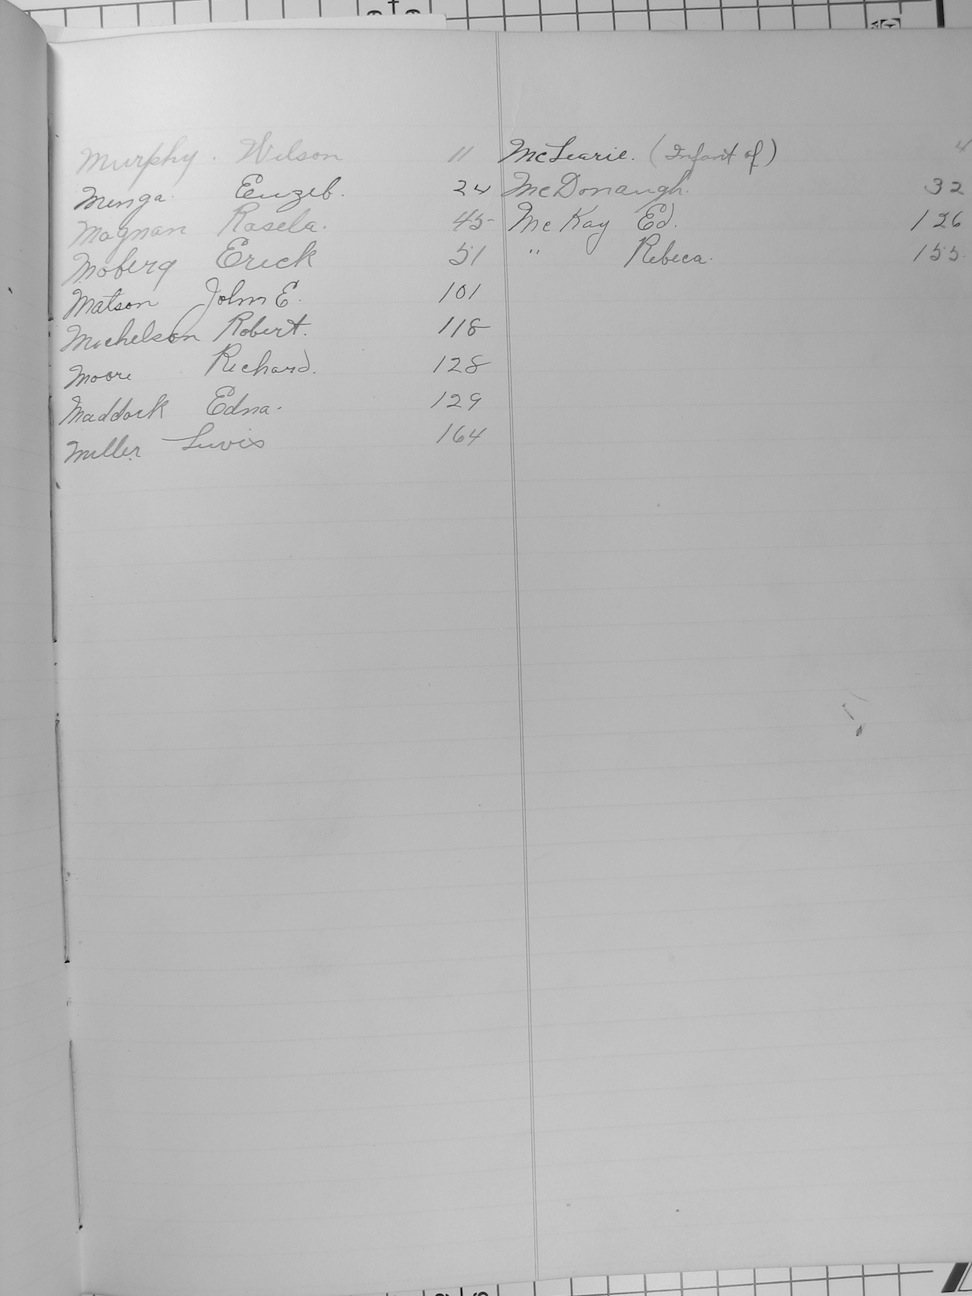 Murphy. Wilson 11
Minga. Euzeb. 24
Magnan Rasela. 45
Moberg Erick 51
Matson John E. 101
Michelson Robert. 118
Moore Richard. 128
Maddock Edna. 129
Miller Luvis 164
McLearie. (Infant of) 4
McDonaugh. 32
McKay Ed. 126
" Rebeca. 155